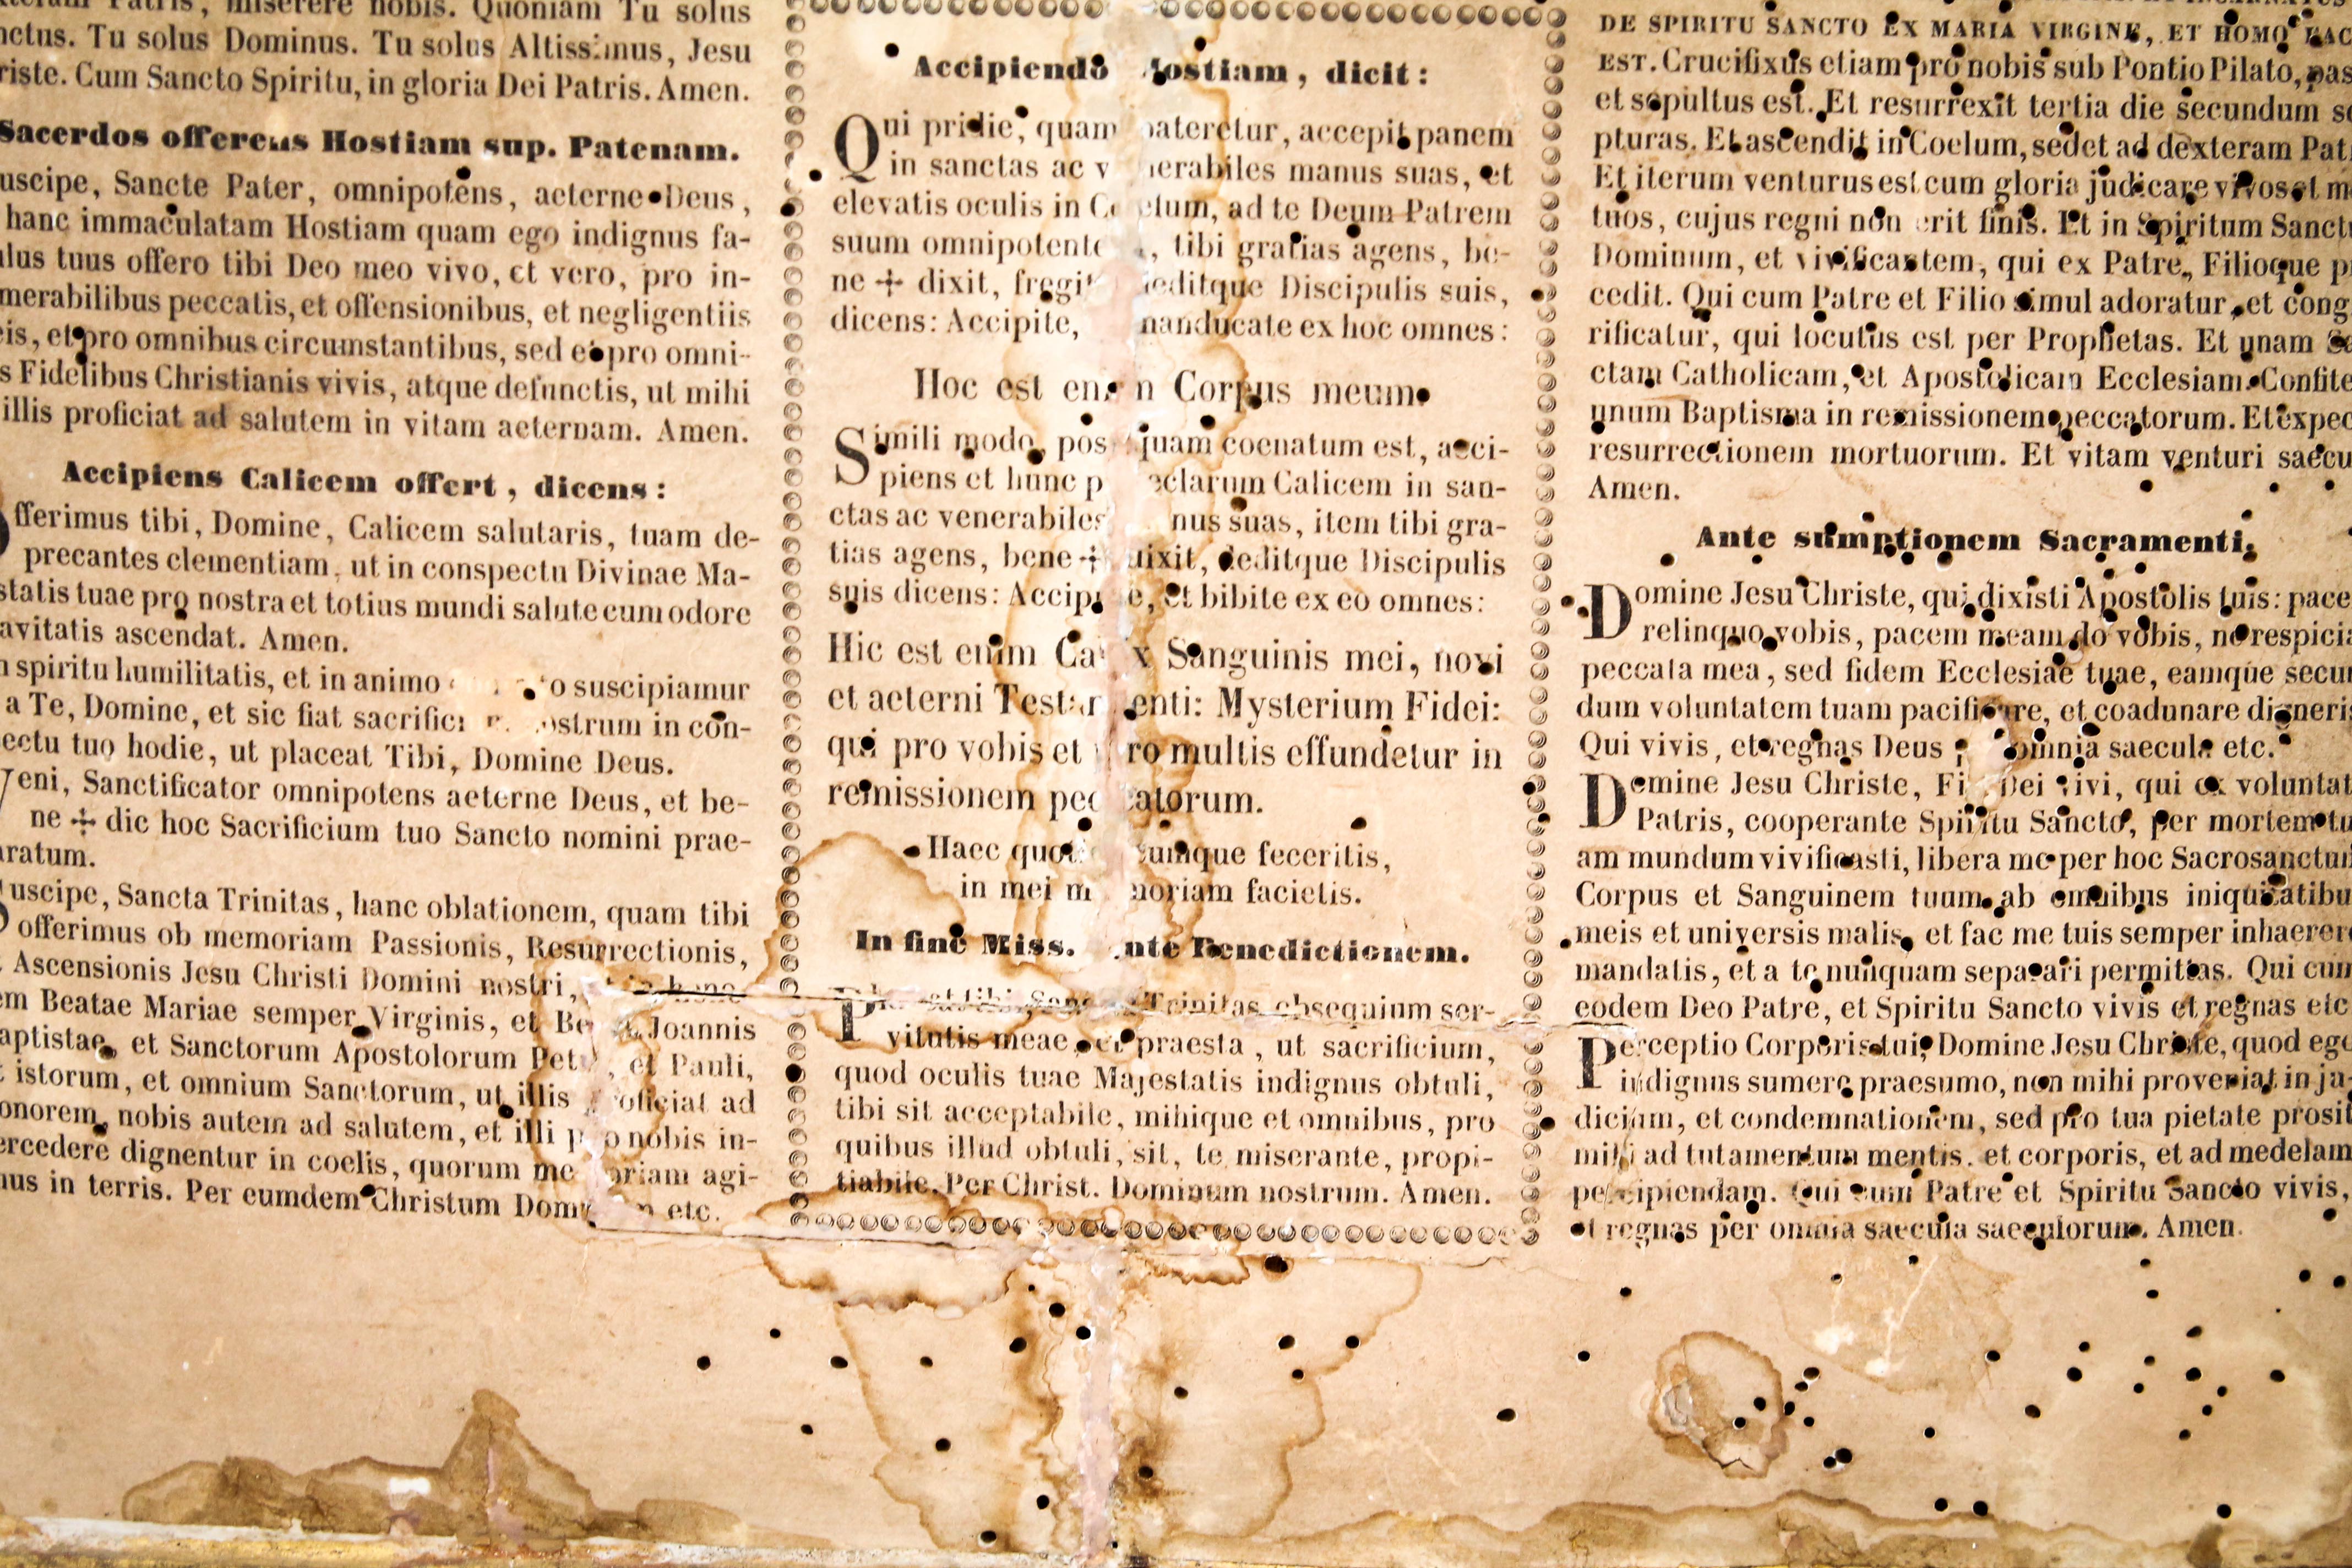 Patris, miserere nobis. Quoniam Tu solus
ctus. Tu solus Dominus. Tu solus Altissimus, Jesu
riste. Cum Sancto Spiritu, in gloria Dei Patris. Amen.
Sacerdos offerens Hostiam sup. Patenam.
uscipe, Sancte Pater, omnipotens, aeterne Deus,
hanc immaculatam Hostiam quam ego indignus fa-
ulus tuus offero tibi Deo meo vivo, et vero, pro in-
merabilibus peccatis, et offensionibus, et negligentiis
eis, et pro omnibus circumstantibus, sed et pro omni-
s Fidelibus Christianis vivis, atque defunctis, ut mihi
illis proficiat ad salutem in vitam aeternam. Amen.
Accipiens Calicem offert, dicens:
Offerimus tibi, Domine, Calicem salutaris, tuam de-
precantes clementiam, ut in conspectu Divinae Ma-
statis tuae pro nostra et totius mundi salute cum odore
avitatis ascendat. Amen.
n spiritu humilitatis, et in animo o suscipiamur
a Te, Domine, et sic fiat sacrifici ostrum in con-
ectu tuo hodie, ut placeat Tibi, Domine Deus.
Veni, Sanctificator omnipotens aeterne Deus, et be-
ne ✢ dic hoc Sacrificium tuo Sancto nomini prae-
aratum.
Suscipe, Sancta Trinitas, hanc oblationem, quam tibi
offerimus ob memoriam Passionis, Resurrectionis,
Ascensionis Jesu Christi Domini nostri,
em Beatae Mariae semper Virginis, et Be Joannis
aptistae, et Sanctorum Apostolorum Pet , et Pauli,
istorum, et omnium Sanctorum, ut illis proficiat ad
onorem, nobis autem ad salutem, et illi pro nobis in-
ercedere dignentur in coelis, quorum me oriam agi-
mus in terris. Per eumdem Christum Dom etc.
Accipiendo Hostiam, dicit:
Qui pridie, quam pateretur, accepit panem
in sanctas ac v nerabiles manus suas, et
elevatis oculis in Co elum, ad te Deum Patrem
suum omnipotente , tibi gratias agens, be-
ne ✢ dixit, fregit deditque Discipulis suis,
dicens: Accipite, manducate ex hoc omnes:
Hoc est enim Corpus meum.
Simili modo, pos quam coenatum est, acci-
piens et hunc p eclarum Calicem in san-
ctas ac venerabiles nus suas, item tibi gra-
tias agens, bene ✢ dixit, deditque Discipulis
suis dicens: Accipi e, et bibite ex eo omnes:
Hic est enim Ca x Sanguinis mei, novi
et aeterni Testam enti: Mysterium Fidei:
qui pro vobis et pro multis effundetur in
remissionem pec catorum.
Haec quoti cumque feceritis,
in mei m moriam facietis.
In fine Miss. ante Benedictionem.
P Trinitas obsequium ser-
vitutis meae, et praesta, ut sacrificium,
quod oculis tuae Majestatis indignus obtuli,
tibi sit acceptabile, mihique et omnibus, pro
quibus illud obtuli, sit, te miserante, propi-
tiabile. Per Christ. Dominum nostrum. Amen.
DE SPIRITU SANCTO EX MARIA VIRGINE, ET HOMO FAC
EST. Crucifixus etiam pro nobis sub Pontio Pilato, pas
et sepultus est. Et resurrexit tertia die secundum sc
pturas. Et ascendit in Coelum, sedet ad dexteram Pat
Et iterum venturus est cum gloria judicare vivos et m
tuos, cujus regni non erit finis. Et in Spiritum Sanctu
Dominum, et vivificantem, qui ex Patre, Filioque p
cedit. Qui cum Patre et Filio simul adoratur, et cong
rificatur, qui locutus est per Prophetas. Et unam Sa
ctam Catholicam, et Apostolicam Ecclesiam. Confite
unum Baptisma in remissionem peccatorum. Et expec
resurrectionem mortuorum. Et vitam venturi saecu
Amen.
Ante sumptionem Sacramenti.
Domine Jesu Christe, qui dixisti Apostolis tuis: pace
relinquo vobis, pacem meam do vobis, ne respicia
peccata mea, sed fidem Ecclesiae tuae, eamque secun
dum voluntatem tuam pacificare, et coadunare digneris
Qui vivis, et regnas Deus p omnia saecula etc.
Domine Jesu Christe, Fi Dei vivi, qui ex voluntat
Patris, cooperante Spiritu Sancto, per mortem tu
am mundum vivificasti, libera me per hoc Sacrosanctum
Corpus et Sanguinem tuum ab omnibus iniquitatibu
meis et universis malis, et fac me tuis semper inhaerere
mandatis, et a te nunquam separari permittas. Qui cum
eodem Deo Patre, et Spiritu Sancto vivis et regnas etc
Perceptio Corporis tui, Domine Jesu Christe, quod ego
indignus sumere praesumo, non mihi proveniat in ju-
dicium, et condemnationem, sed pro tua pietate prosit
mihi ad tutamentum mentis, et corporis, et ad medelam
percipiendam. Qui cum Patre et Spiritu Sancto vivis,
et regnas per omnia saecula saeculorum. Amen.